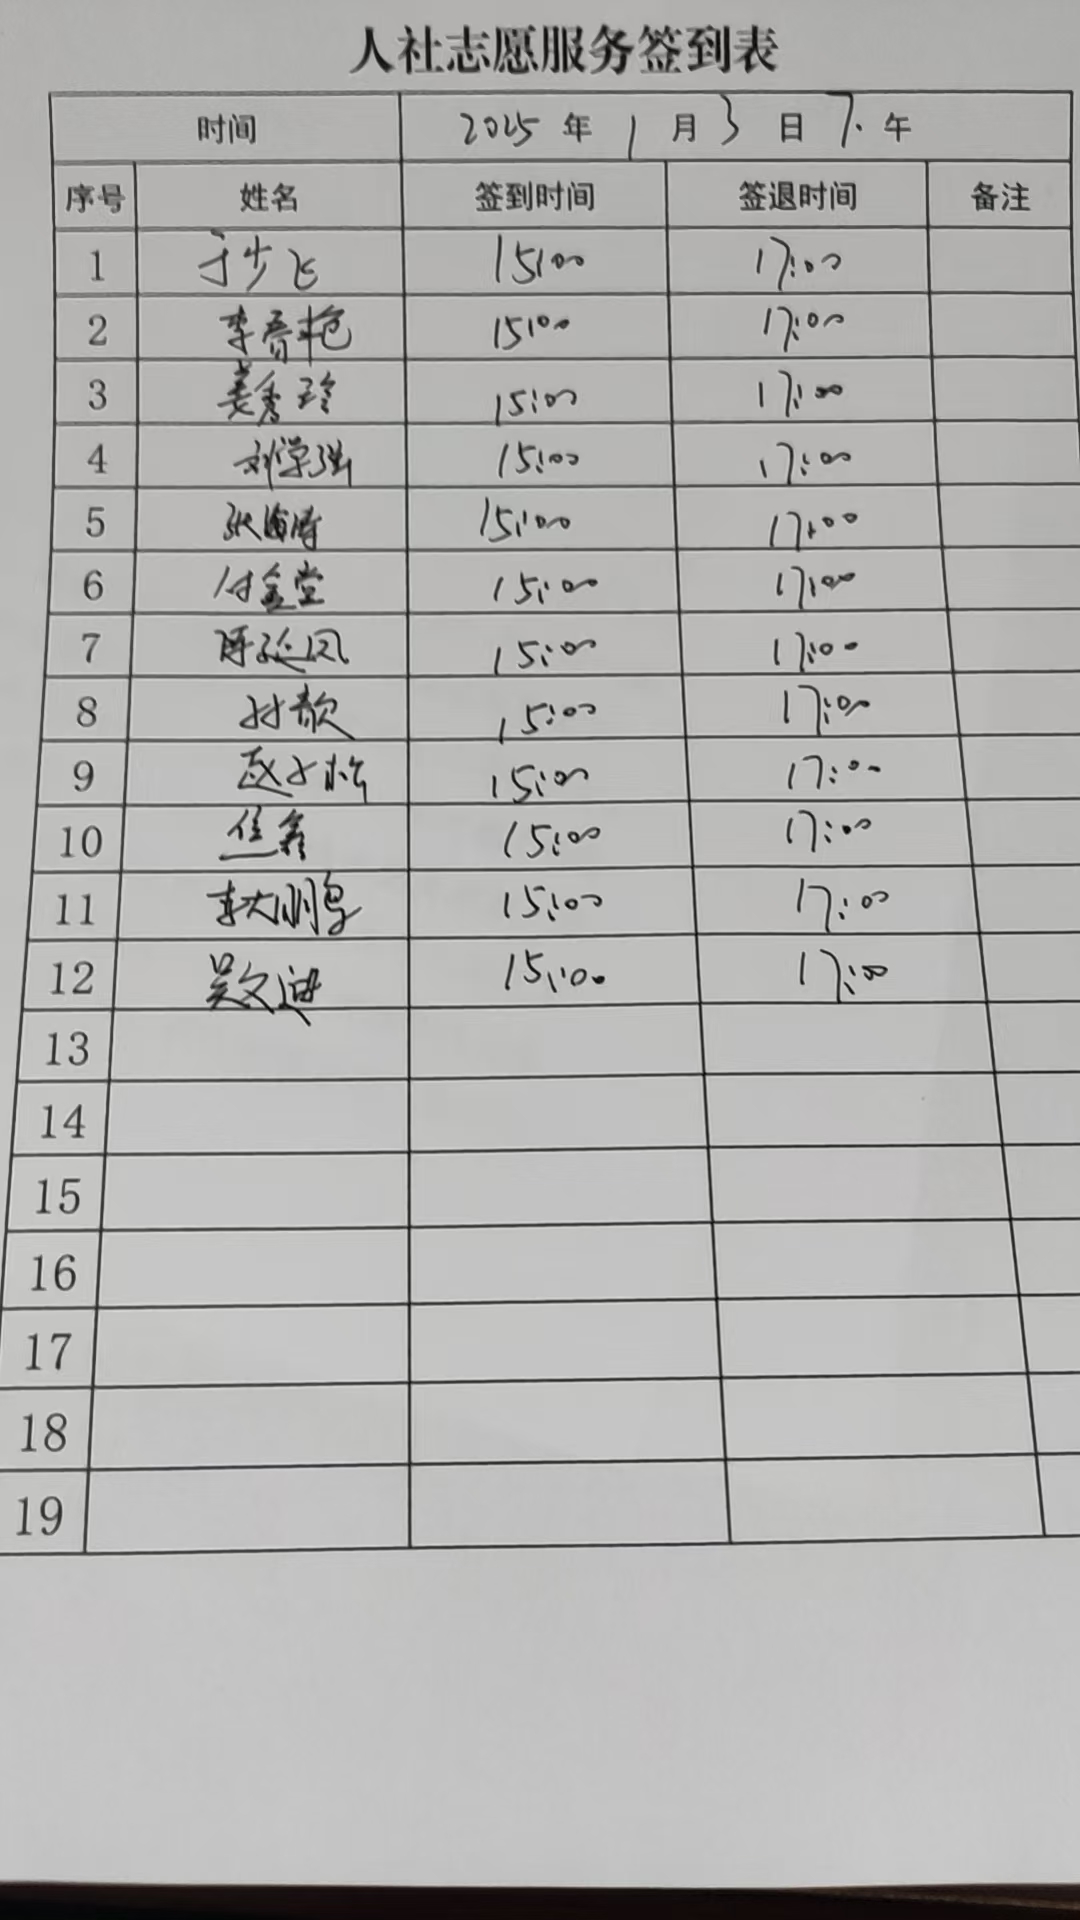 人社志愿服务签到表
时间 2025 年 1 月 3 日 下 午
序号 姓名 签到时间 签退时间 备注
1 于少飞 15:00 17:00
2 李春艳 15:00 17:00
3 姜秀玲 15:00 17:00
4 刘学强 15:00 17:00
5 张海涛 15:00 17:00
6 付金堂 15:00 17:00
7 陈延凤 15:00 17:00
8 15:00 17:00
9 15:00 17:00
10 焦鑫 15:00 17:00
11 李大鹏 15:00 17:00
12 吴文迪 15:00 17:00
13
14
15
16
17
18
19